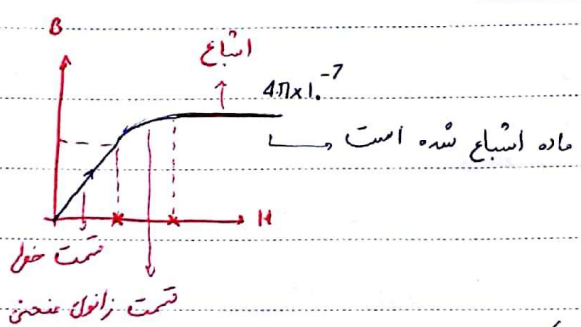 B
اشباع
4π×10⁻⁷
ماده اشباع شده است
H
قسمت خطی
قسمت زانوی منحنی